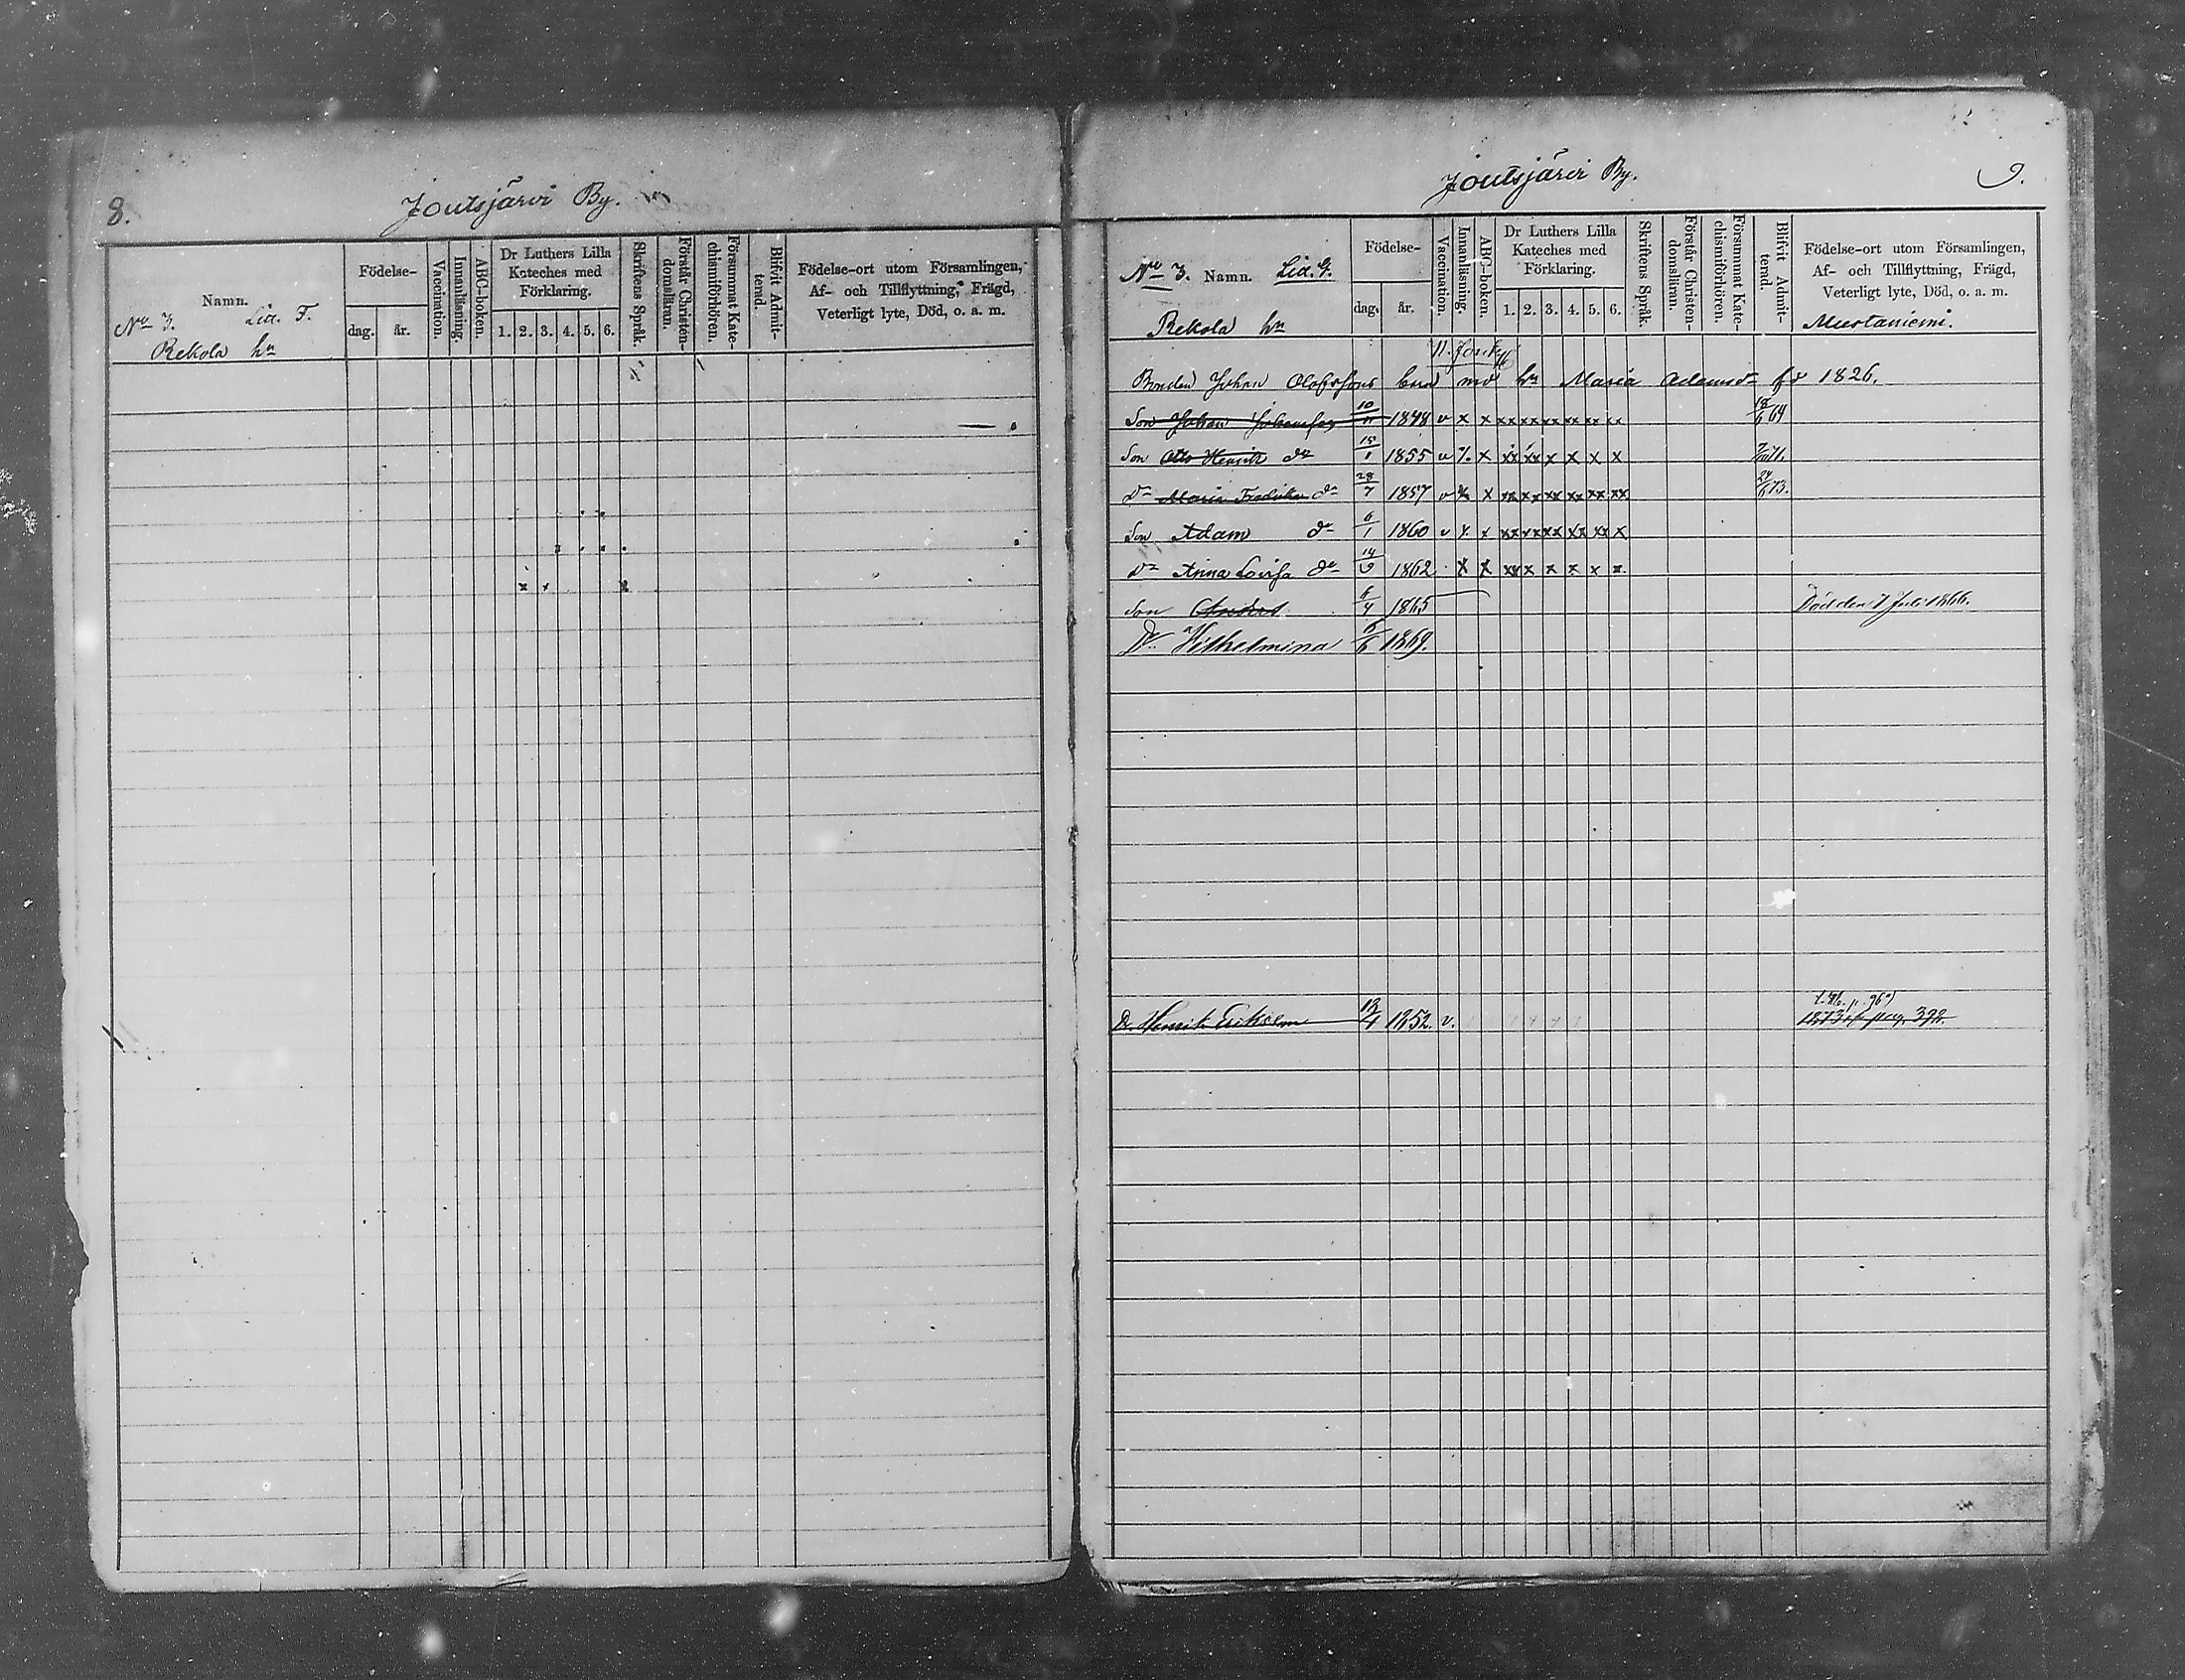 8.
Joutsjärvi By.
Namn.
No 3. Lia. F.
Rekola hn
Födelse-
dag. år.
Vaccination.
Innanläsning.
ABC-boken.
Dr Luthers Lilla
Kateches med
Förklaring.
1. 2. 3. 4. 5. 6.
Skriftens Språk.
Förstår Christen-
domsläran.
Försummat Kate-
chismiförhören.
Blifvit Admit-
terad.
Födelse-ort utom Församlingen,
Af- och Tillflyttning, Frägd,
Veterligt lyte, Död, o. a. m.
Joutsjärvi By.
9.
No 3. Namn. Lia. G.
Rekola hn
Födelse-
dag. år.
Vaccination.
Innanläsning.
ABC-boken.
Dr Luthers Lilla
Kateches med
Förklaring.
1. 2. 3. 4. 5. 6.
Skriftens Språk.
Förstår Christen-
domsläran.
Försummat Kate-
chismiförhören.
Blifvit Admit-
terad.
Födelse-ort utom Församlingen,
Af- och Tillflyttning, Frägd,
Veterligt lyte, Död, o. a. m.
Mustaniemi.
Bonden Johan Olofsson hn Maria Adamsdr 1826.
Son Johan Johansson 10/11 1848 v x x xx xx xx xx xx xx 18/6 64
Son Otto Henrik do 15/1 1855 v x x x x x x
Dr Maria Fredrika do 28/7 1857 v x x xx xx xx xx xx xx 24/6 73.
Son Adam do 6/1 1860 v x x xx xx xx xx xx x
Dr Anna Lovisa do 14/9 1862 x x xx x x x x x
Son Anders 6/4 1865 Död den 7 Juli 1866.
Dr Wilhelmina 5/6 1869.
Dr. Henrik Eriksson 13/4 1852. v. 1873 pag. 392.